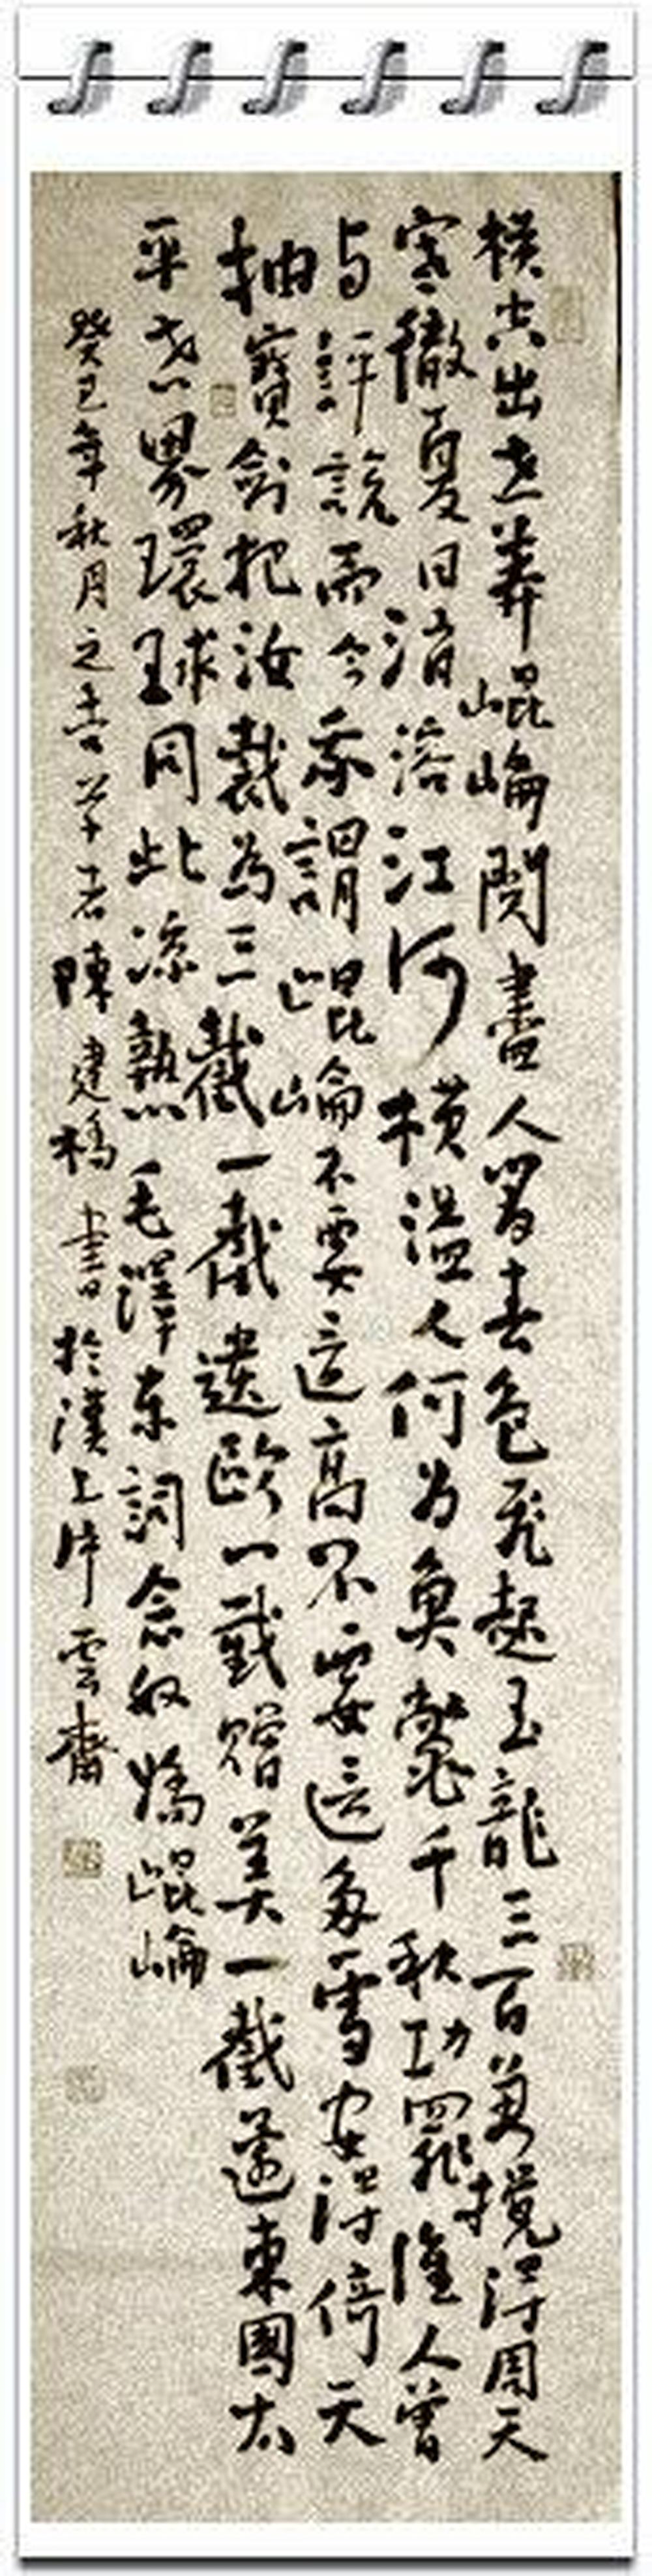 横空出世莽崐崘閱盡人間春色飛起玉龍三百萬攪得周天
寒徹夏日消溶江河横溢人何为魚鱉千秋功罪谁人曾
与評說而今我謂崐崘不要這高不要這多雪安得倚天
抽寶劍把汝裁為三截一截遺歐一截贈美一截還東國太
平世界環球同此涼熱毛澤东詞念奴嬌崐崘
癸巳年秋月之吉陳建橋書於漢上片雲齋